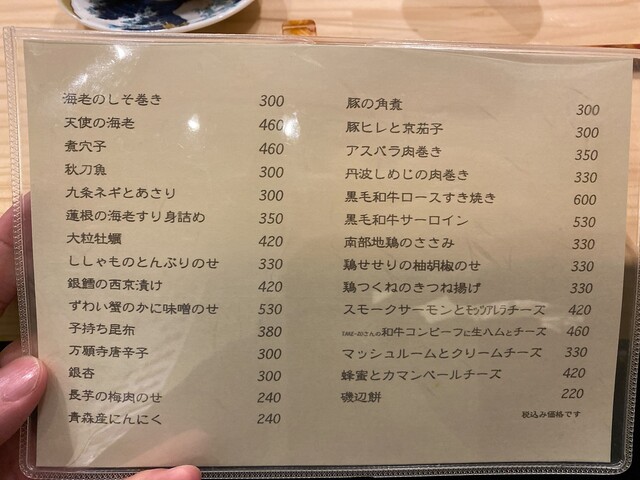 海老のしそ巻き 300
天使の海老 460
煮穴子 460
秋刀魚 300
九条ネギとあさり 300
蓮根の海老すり身詰め 350
大粒牡蠣 420
ししゃものとんぶりのせ 330
銀鱈の西京漬け 420
ずわい蟹のかに味噌のせ 530
子持ち昆布 380
万願寺唐辛子 300
銀杏 300
長芋の梅肉のせ 240
青森産にんにく 240
豚の角煮 300
豚ヒレと京茄子 300
アスパラ肉巻き 350
丹波しめじの肉巻き 330
黒毛和牛ロースすき焼き 600
黒毛和牛サーロイン 530
南部地鶏のささみ 330
鶏せせりの柚胡椒のせ 330
鶏つくねのきつね揚げ 330
スモークサーモンとモッツアレラチーズ 420
さんの和牛コンビーフに生ハムとチーズ 460
マッシュルームとクリームチーズ 330
蜂蜜とカマンベールチーズ 420
磯辺餅 220
税込み価格です